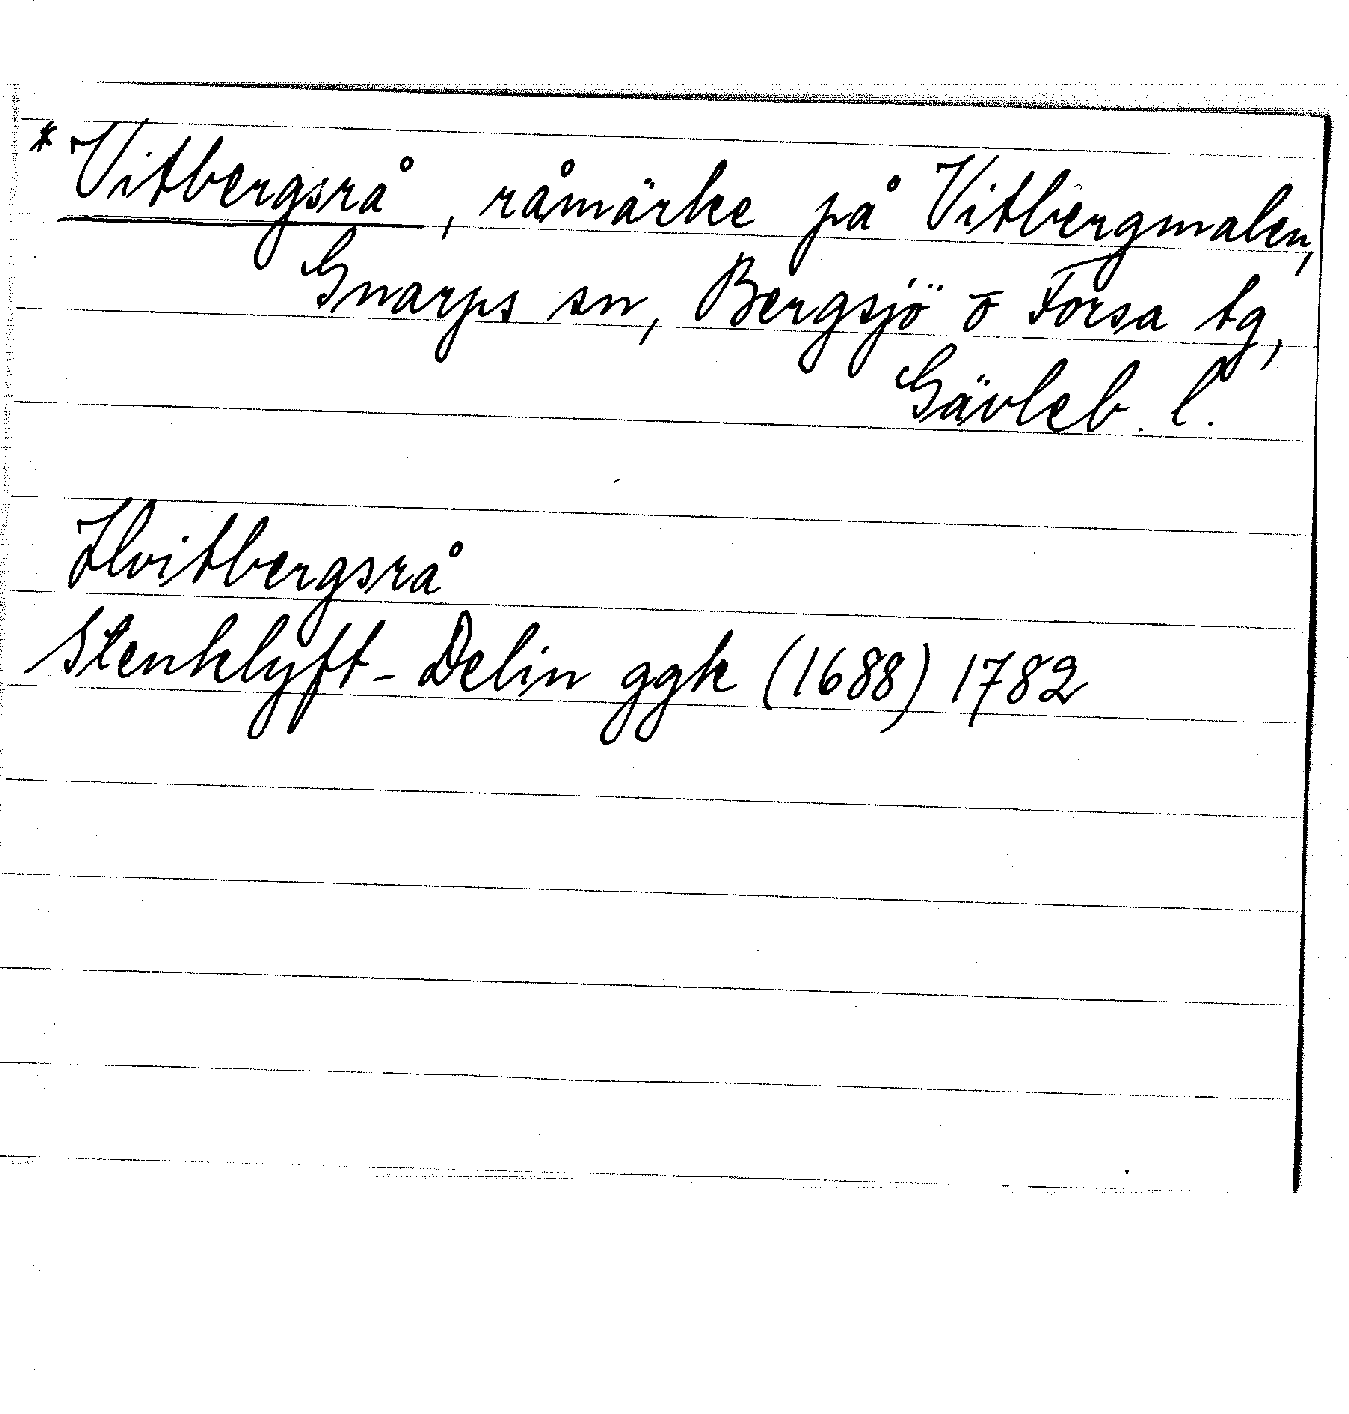 * Vitbergsrå, råmärke på Vitbergmalen,
Gnarps sn, Bergsjö o Forsa tg,
Gävleb. l.
Hvitbergsrå
Stenklyft-Delin ggk (1688) 1782